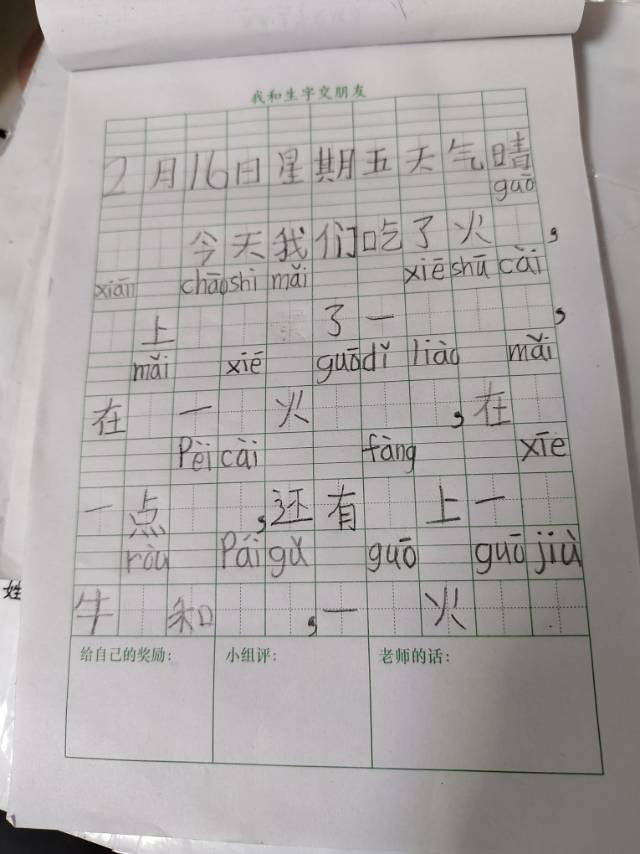 我和生字交朋友
2月16日星期五天气晴
guō
今天我们吃了火,
xiān chāoshì mǎi xiē shū cài
上 了一,
mǎi xiē guōdǐ liào mǎi
在一火,在
Pèi cài fàng xiē
一点,还有上一
ròu Pái gǔ guō guō jiù
牛和,一火
给自己的奖励:
小组评:
老师的话:
姓